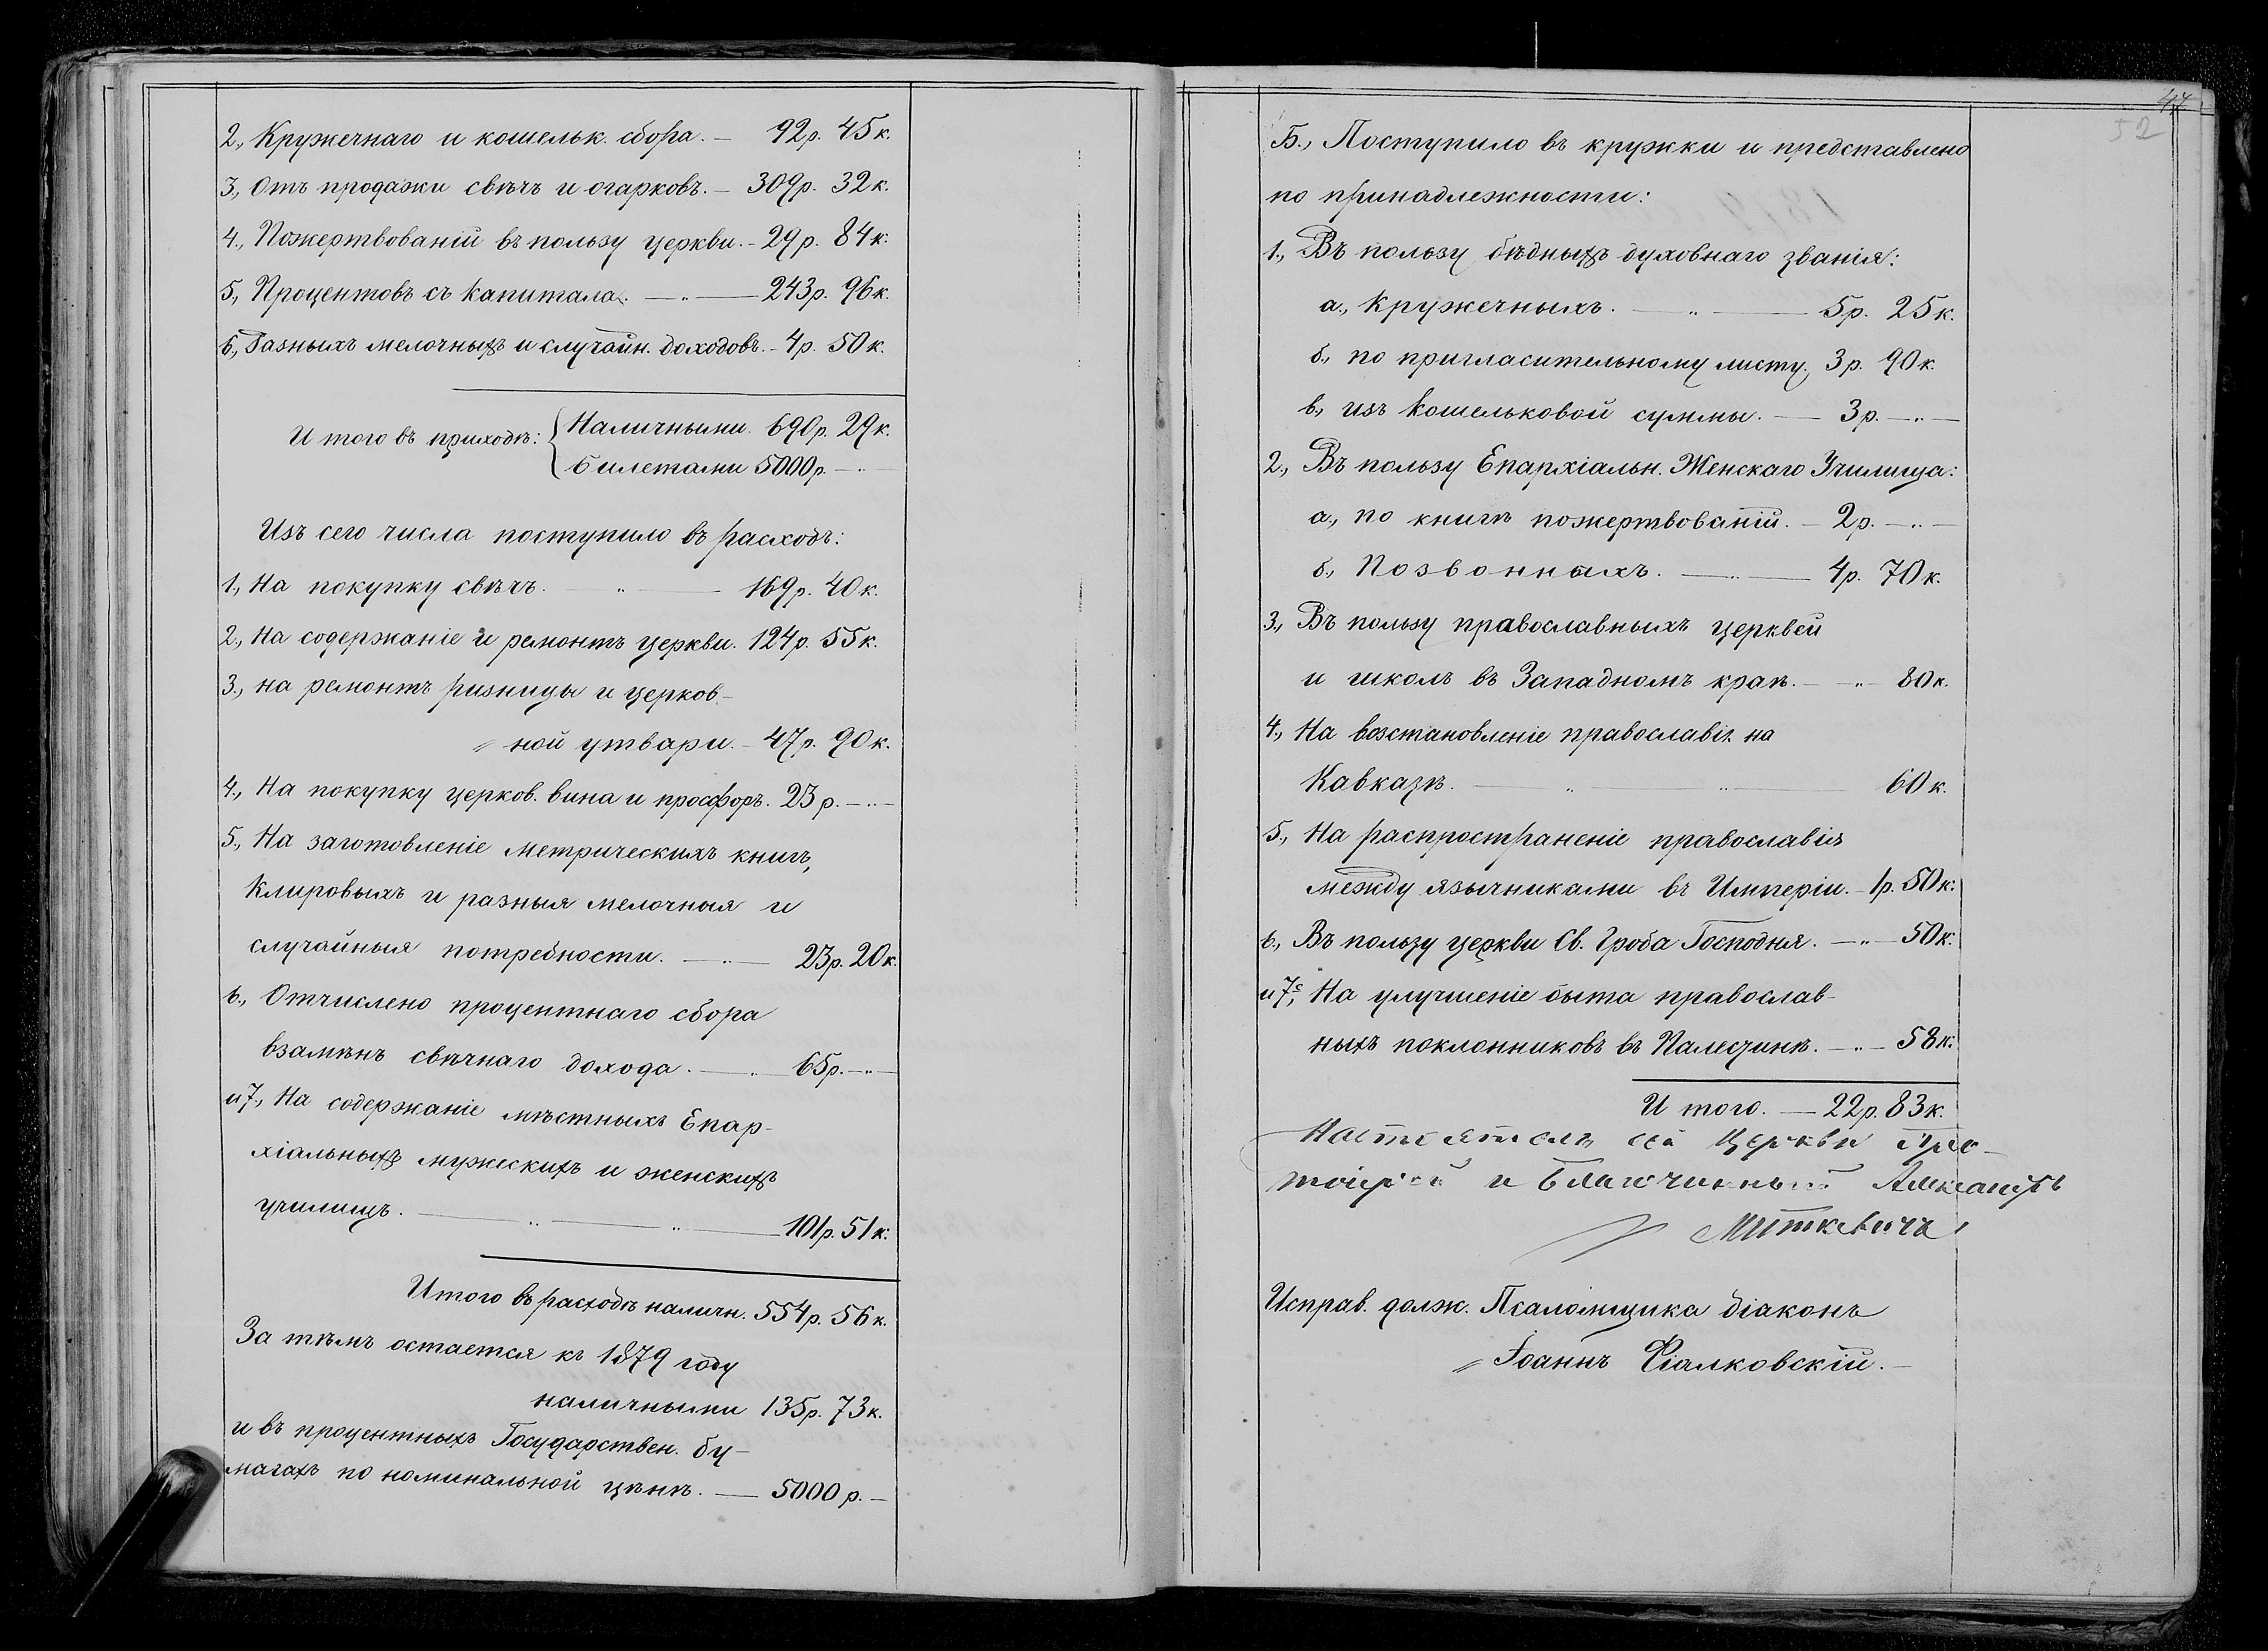 2., Кружечнаго и кошельк. сбора. — 92р. 45к.
3., Отъ продажи свѣчъ и огарковъ. — 309р. 32к.
4., Пожертвованій въ пользу церкви. — 29р. 84к.
5., Процентовъ съ капитала. — „ — 243р. 96к.
6., Разныхъ мелочныхъ и случайн. доходовъ. — 4р. 50к.
Итого въ приходѣ: Наличными 690р. 29к.
билетами 5000р. — „ —
Изъ сего числа поступило въ расходъ:
1., На покупку свѣчъ. — „ — 169р. 40к.
2., На содержаніе и ремонтъ церкви. 124р. 55к.
3., на ремонтъ ризницы и церков-
ной утвари. — 47р. 90к.
4., На покупку церков. вина и просфоръ. 23р. — „ —
5., На заготовленіе метрическихъ книгъ,
клировыхъ и разныя мелочныя и
случайныя потребности. — „ — 23р. 20к.
6., Отчислено процентнаго сбора
взамѣнъ свѣчнаго дохода. — „ 65р. — „ —
и 7., На содержаніе мѣстныхъ Епар-
хіальныхъ мужескихъ и женскихъ
училищъ. — „ — „ — 101р. 51к.
Итого въ расходѣ наличн. 554р. 56к.
За тѣмъ остается къ 1879 году
наличными 135р. 73к.
и въ процентныхъ Государствен. бу-
магахъ по номинальной цѣнѣ. — 5000р. —
47
52
Б., Поступило въ кружки и представлено
по принадлежности:
1., Въ пользу бѣдныхъ духовнаго званія:
а., Кружечныхъ. — „ — 5р. 25к.
б., по пригласительному листу. 3р. 90к.
в., изъ кошельковой суммы. — 3р. — „ —
2., Въ пользу Епархіальн. Женскаго Училища:
а., по книгѣ пожертвованій. — 2р. — „ —
б., Позвонныхъ. — „ — 4р. 70к.
3., Въ пользу православныхъ церквей
и школъ въ Западномъ краѣ. — „ — 80к.
4., На возстановленіе православія на
Кавказѣ. — „ — „ — 60к.
5., На распространеніе православія
между язычниками въ Имперіи. — 1р. 50к.
6., Въ пользу церкви Св. Гроба Господня. — „ — 50к.
и 7е, На улучшеніе быта православ-
ныхъ поклонниковъ въ Палестинѣ. — „ — 58к.
Итого. — 22р. 83к.
Настоятель сей Церкви Про-
тоіерей и Благочинный Александръ
Миткевичъ
Исправ. долж. Псаломщика діаконъ
Іоаннъ Фіалковскій. —